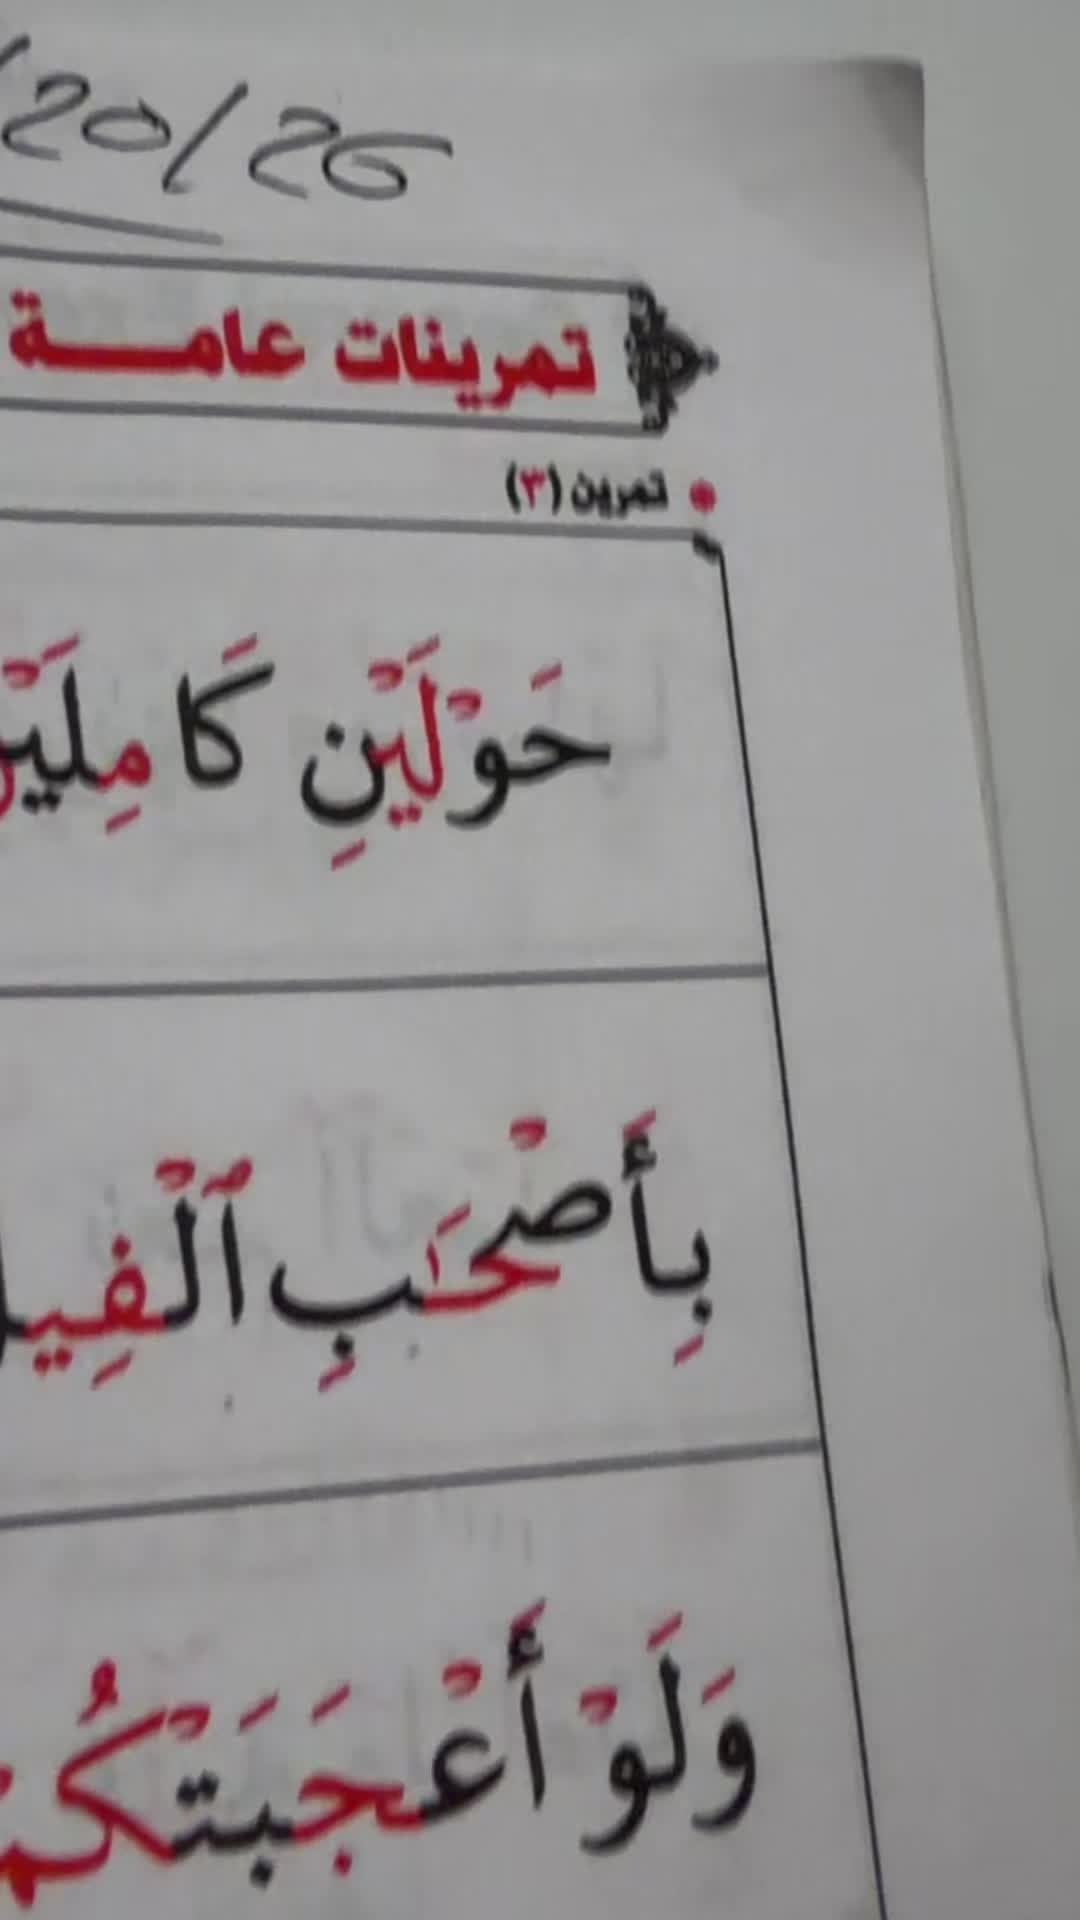 /20/26
تمرينات عامـــة
تمرين (٣)
حَوْلَيْنِ كَامِلَيْنِ
بِأَصْحَٰبِ ٱلْفِيلِ
وَلَوْ أَعْجَبَتْكُمْ